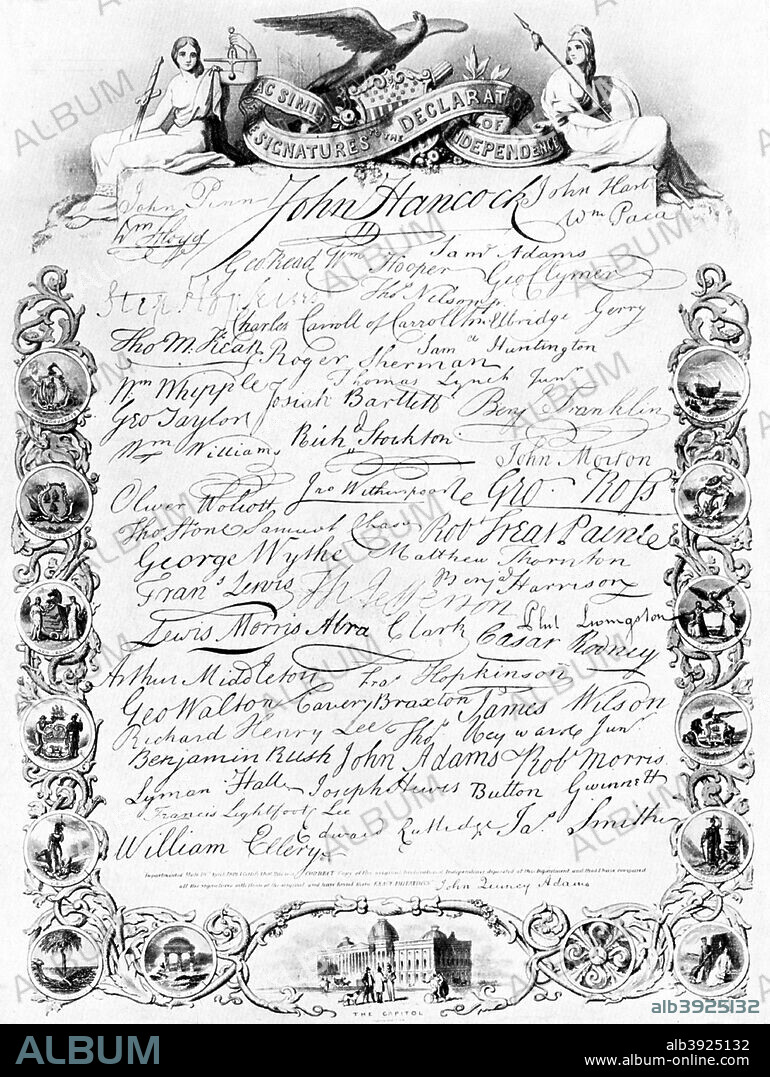 FAC SIMILE
SIGNATURES TO THE DECLARATION
OF
INDEPENDENCE
John Penn John Hancock John Hart
Wm Floyd Wm Paca
Geo Read Wm Hooper Saml Adams
Geo Clymer
Step Hopkins Thos Nelson jr.
Charles Carroll of Carrollton Elbridge Gerry
Tho M:Kean Roger Sherman Saml Huntington
Wm Whipple Thomas Lynch Junr
Josiah Bartlett Benj Franklin
Geo Taylor
Wm Williams Richd Stockton John Morton
Oliver Wolcott Jno Witherspoon Geo. Ross
Thos Stone Samuel Chase Robt Treat Paine
George Wythe Matthew Thornton
Frans Lewis Th Jefferson Benja Harrison
Lewis Morris Abra Clark Phil Livingston
Cæsar Rodney
Arthur Middleton Fras Hopkinson
Geo Walton Carter Braxton James Wilson
Richard Henry Lee Thos Heyward Junr
Benjamin Rush John Adams Robt Morris
Lyman Hall Joseph Hewes Button Gwinnett
Francis Lightfoot Lee
Edward Rutledge Jas Smith
William Ellery
CORRECT Copy of the original Declaration of Independence deposited at this Department and that I have compared
all the signatures with those of the original and have found them EXACT IMITATIONS John Quincy Adams
THE CAPITOL
ALBUM
alb3925132
ALBUM
alb3925132
www.album-online.com